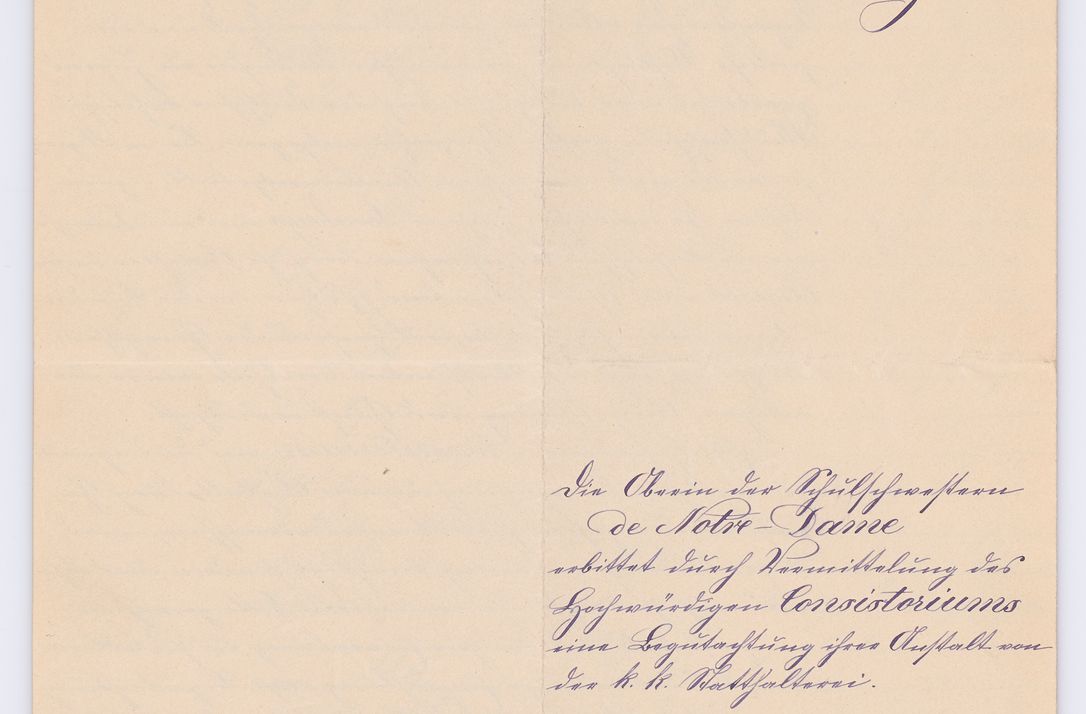 Die Oberin der Schulschwestern
de Notre-Dame
erbittet durch Vermittelung des
Hochwürdigen Consistoriums
eine Begutachtung ihrer Anstalt von
der k. k. Statthalterei.